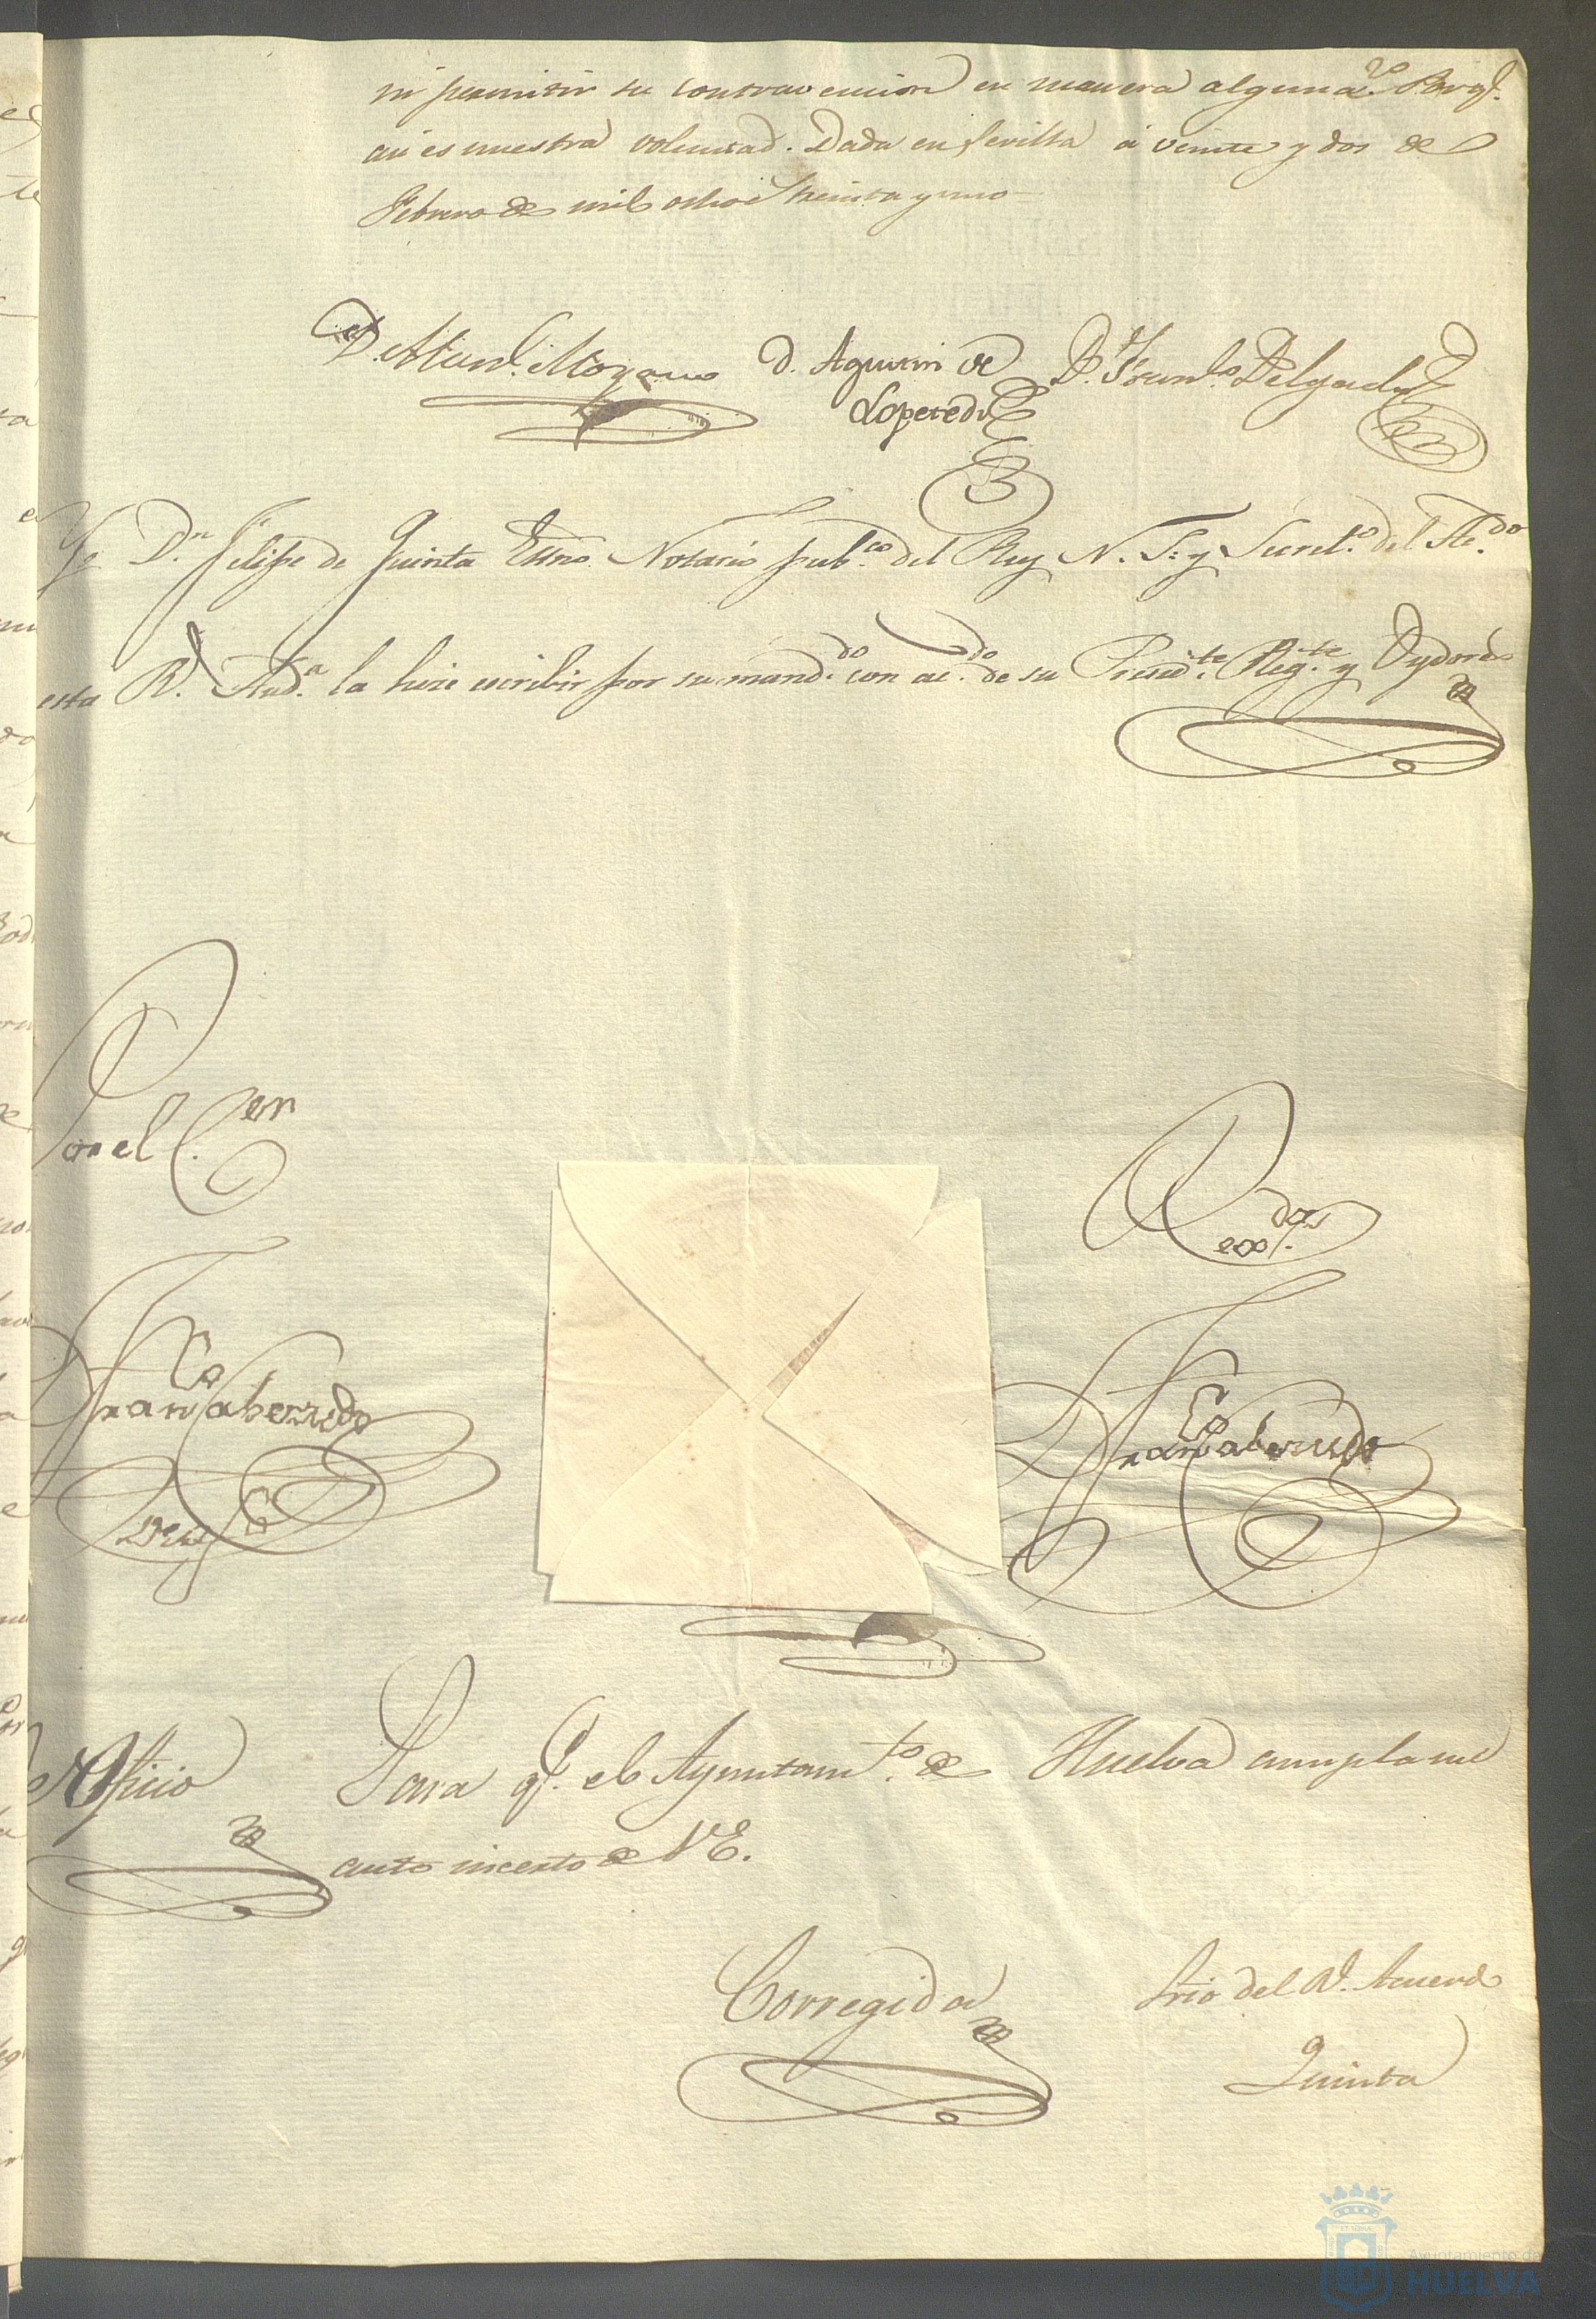 ni permitir su contravencion en manera alguna. Porq.e
asi es nuestra voluntad. Dada en Sevilla á veinte y dos de
Febrero de mil ochoc.s treinta y uno
D. Man.l Moyano D. Agustin de D. Fran.co Delgado
Loperedo
Yo D.n Felipe de Quinta Essno. Notario pub.co del Rey N. S. y Secret.o del Ac.do
esta R.l Aud.a la hice escribir por su mand.do con ac.do de su Presid.te Reg.te y Oydores
Por el C.er
R.dor
Fran.co Caberredo
Fran.co Caberredo
Oficio Para q.e el Ayuntam.to de Huelva cumpla un
auto incerto de V.E.
Corregida Srio del R.l Acuerdo
Quinta
Ayuntamiento de
HUELVA